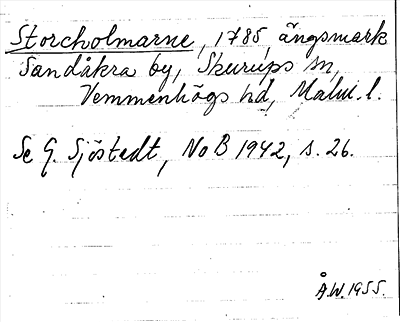 Storcholmarne, 1785 ängsmark
Sandåkra by, Skurups sn,
Vemmenhögs hd, Malm. l.
Se G. Sjöstedt, NoB 1942, s. 26.
Å.W. 1955.